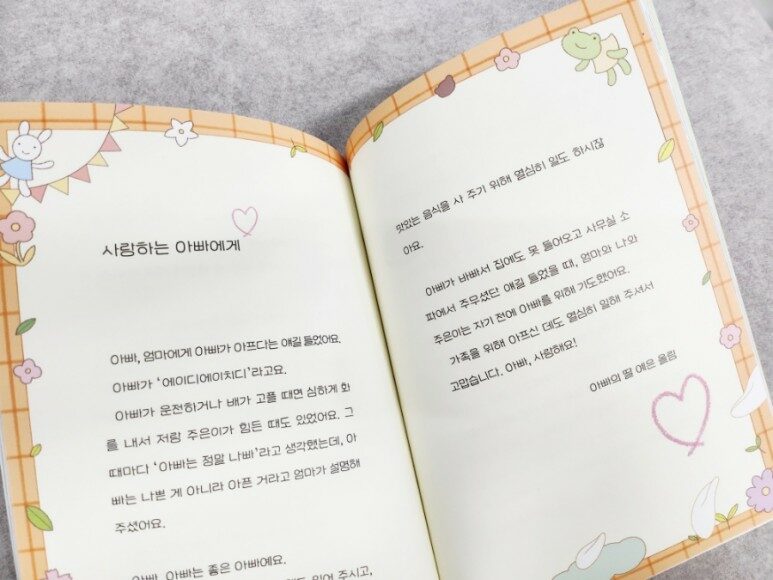 사랑하는 아빠에게
아빠, 엄마에게 아빠가 아프다는 얘길 들었어요.
아빠가 ‘에이디에이치디’라고요.
아빠가 운전하거나 배가 고플 때면 심하게 화
를 내서 저랑 주은이가 힘든 때도 있었어요. 그
때마다 ‘아빠는 정말 나빠’라고 생각했는데, 아
빠는 나쁜 게 아니라 아픈 거라고 엄마가 설명해
주셨어요.
아빠, 아빠는 좋은 아빠예요.
도 읽어 주시고,
맛있는 음식을 사 주기 위해 열심히 일도 하시잖
아요.
아빠가 바빠서 집에도 못 들어오고 사무실 소
파에서 주무셨단 얘길 들었을 때, 엄마와 나와
주은이는 자기 전에 아빠를 위해 기도했어요.
가족을 위해 아프신 데도 열심히 일해 주셔서
고맙습니다. 아빠, 사랑해요!
아빠의 딸 예은 올림